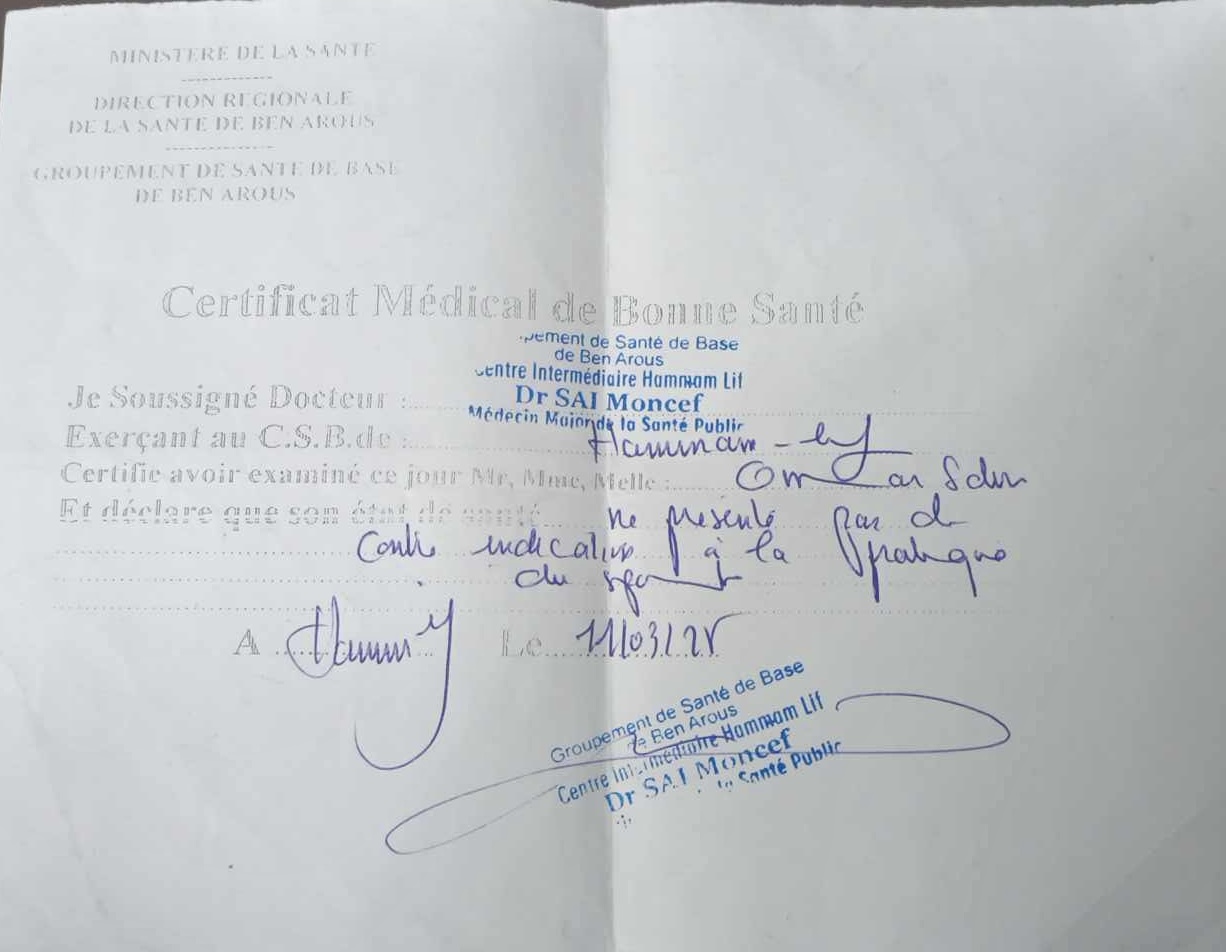 MINISTERE DE LA SANTE
-------------
DIRECTION REGIONALE
DE LA SANTE DE BEN AROUS
---------------
GROUPEMENT DE SANTE DE BASE
DE BEN AROUS
Certificat Médical de Bonne Santé
pement de Santé de Base
de Ben Arous
Centre Intermédiaire Hammam Lif
Je Soussigné Docteur : Dr SAI Moncef
Médecin Major de la Santé Public
Exerçant au C.S.B.de : Hammam-lif
Certifie avoir examiné ce jour Mr, Mme, Melle : Omar
Et déclare que son état de santé ne présente pas de
contre indication à la pratique
du sport
A Le 11/03/25
Groupement de Santé de Base
de Ben Arous
Centre Intermédiaire Hammam Lif
Dr SAI Moncef
la Santé Public